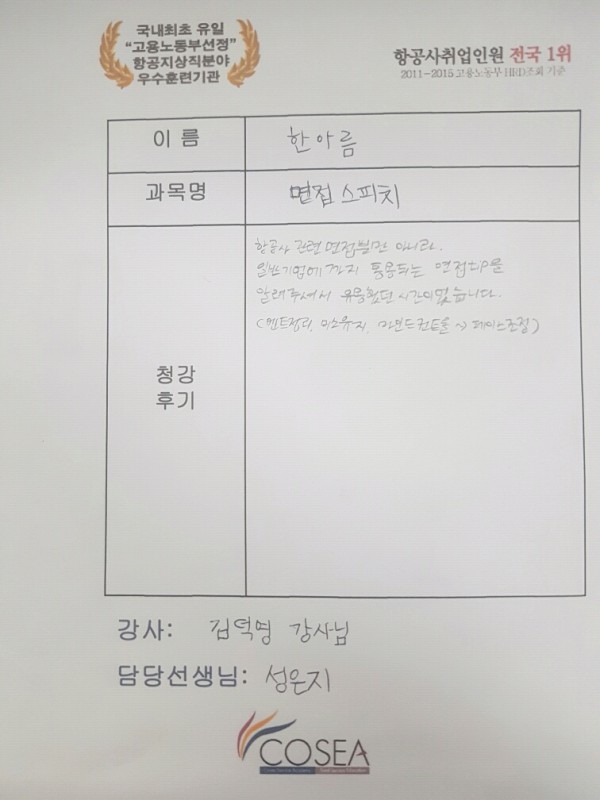 국내최초 유일
"고용노동부선정"
항공지상직분야
우수훈련기관
항공사취업인원 전국 1위
2011~2015 고용노동부 HRD조회 기준
이 름
한아름
과목명
면접 스피치
청강
후기
항공사 관련 면접뿐만 아니라.
일반기업에 까지 통용되는 면접tip을
알려주셔서 유용했던 시간이었습니다.
(멘트정리, 미소유지, 마인드컨트롤 ~> 페이스조절)
강사: 김덕영 강사님
담당선생님: 성은지
COSEA